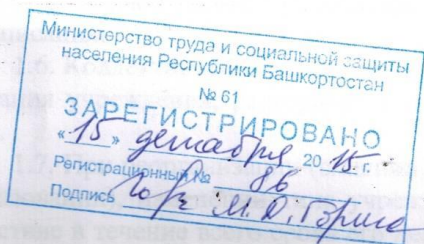 Министерство труда и социальной защиты
населения Республики Башкортостан
№ 61
ЗАРЕГИСТРИРОВАНО
«15» декабря 2015 г.
Регистрационный № 86
Подпись
1.6.
1.7.
в течение всего